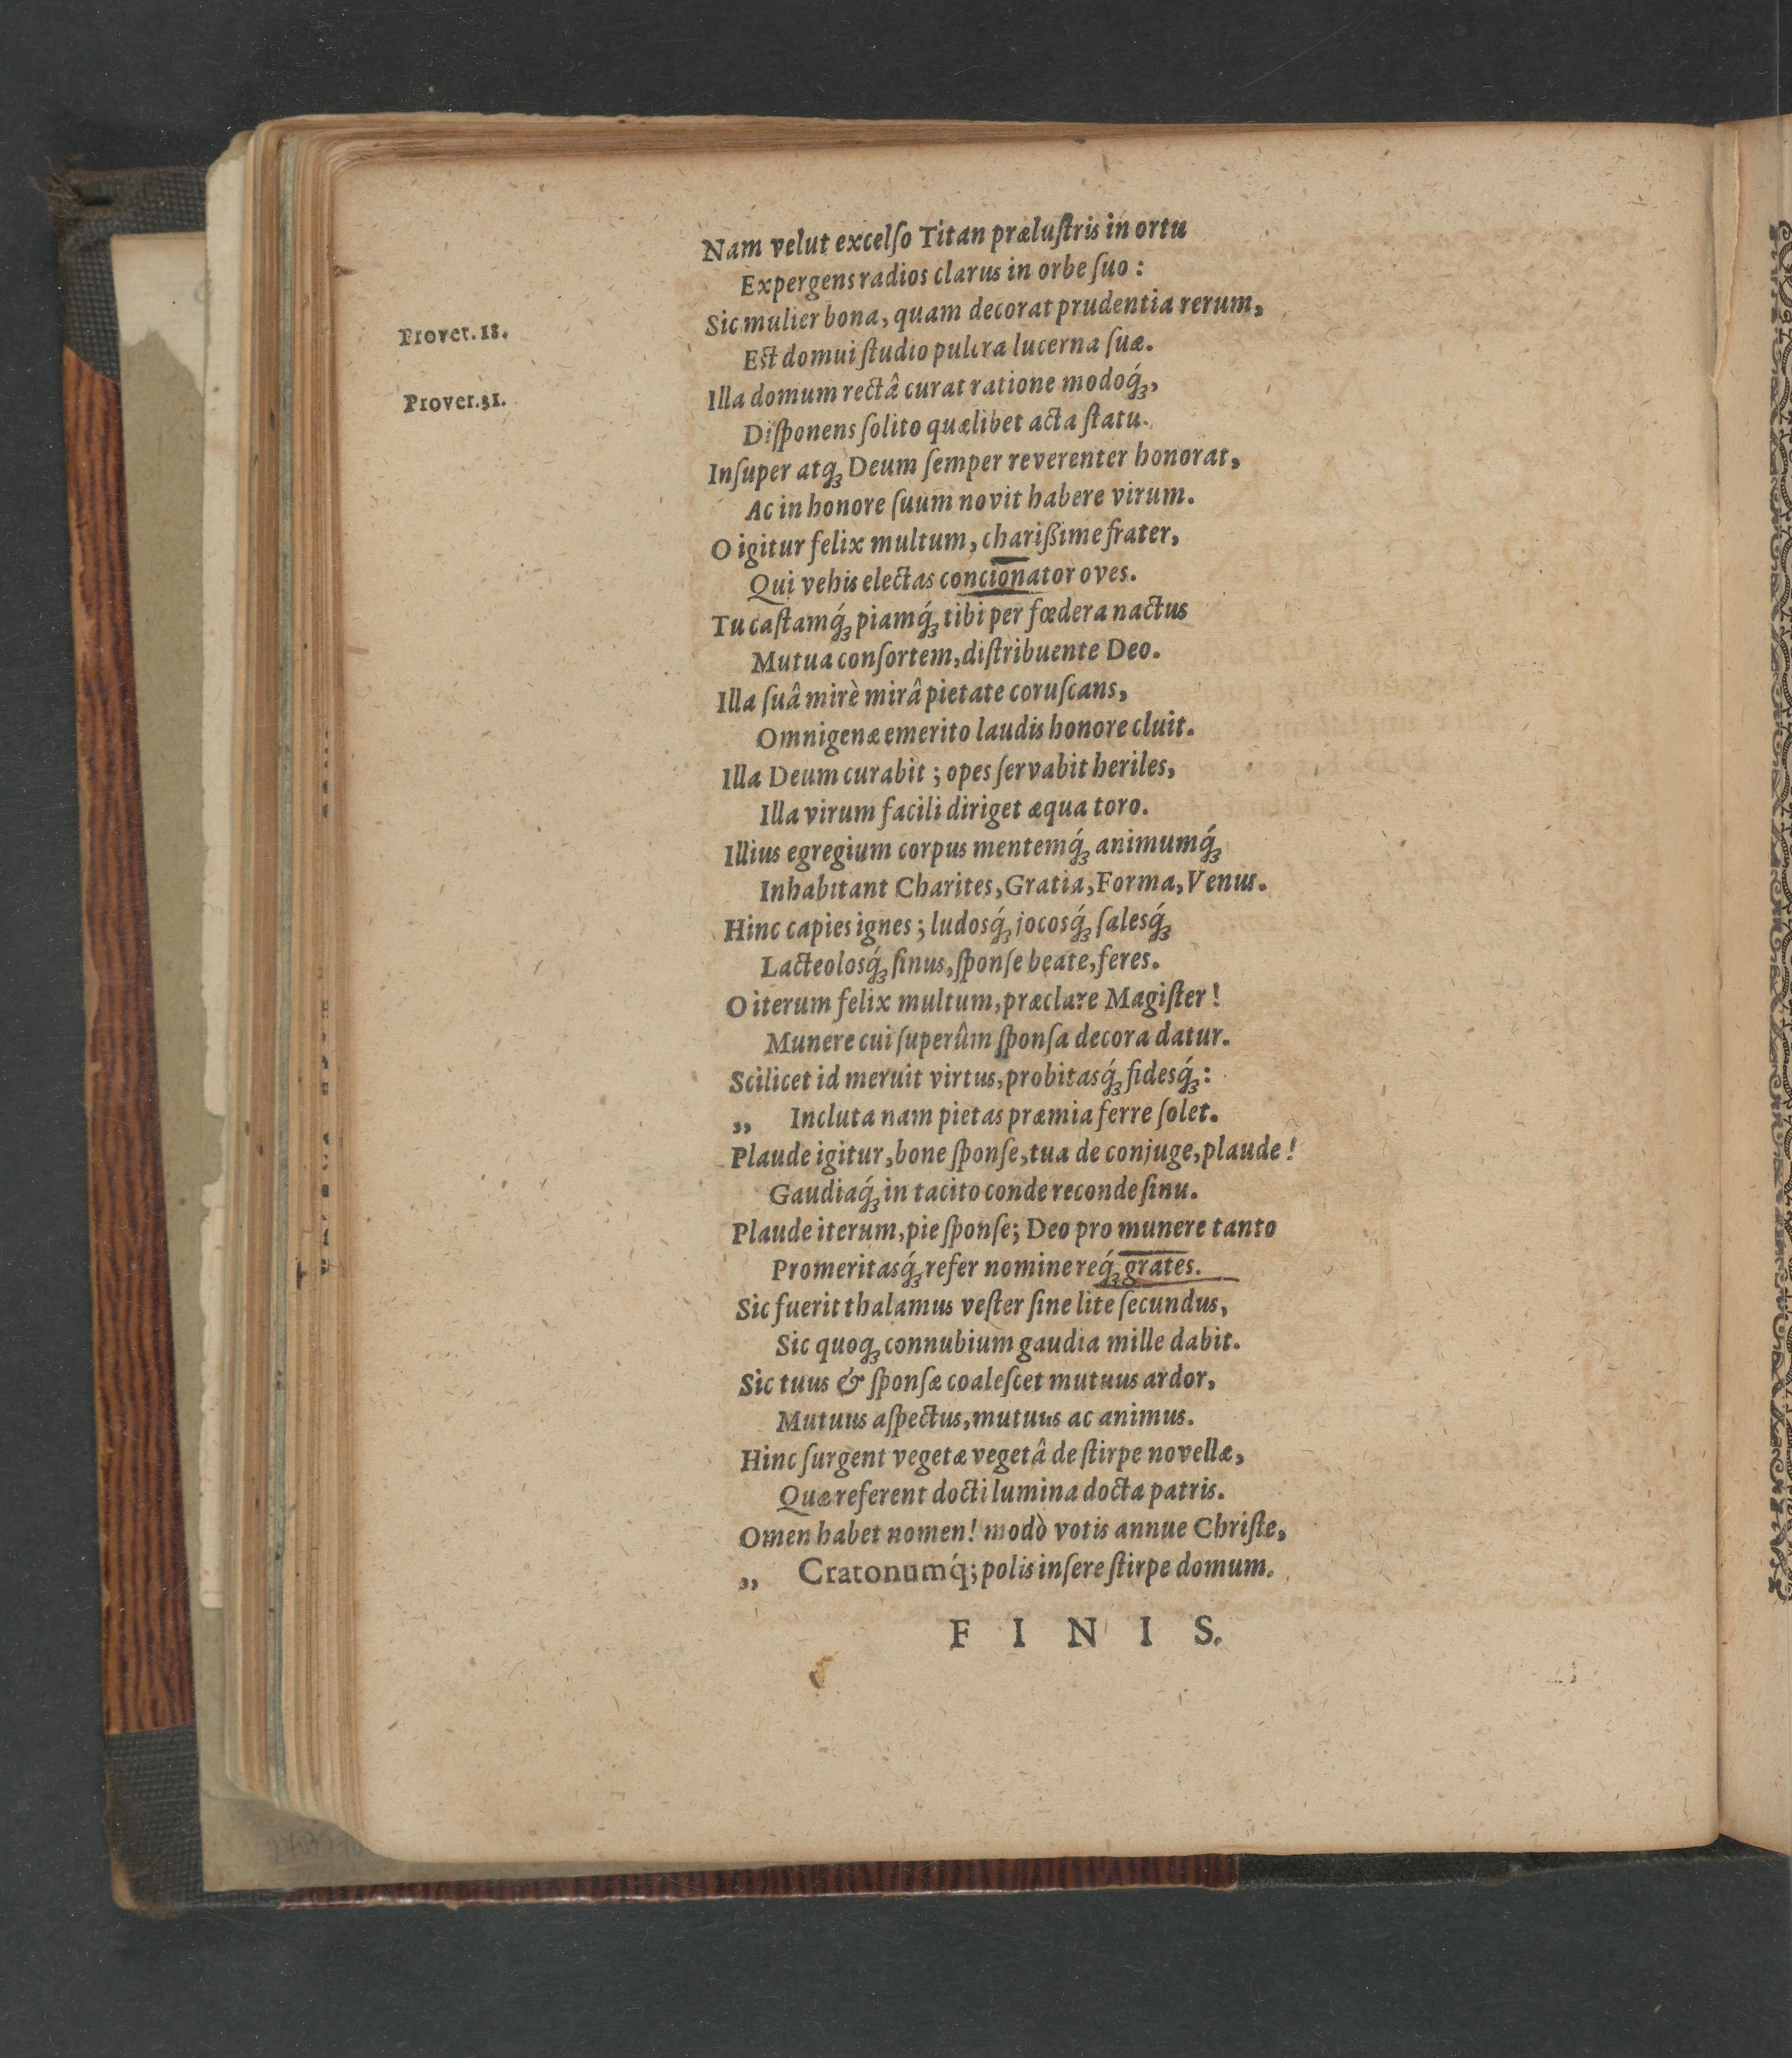 Nam velut excelſo Titan præluſtris in ortu
Expergens radios clarus in orbe ſuo :
Sic mulier bona, quam decorat prudentia rerum,
Prover. 18.
Est domui ſtudio pulcra lucerna ſuæ.
Illa domum rectâ curat ratione modoq́ꝫ,
Prover. 31.
Diſponens ſolito quælibet acta ſtatu.
Inſuper atqꝫ Deum ſemper reverenter honorat,
Ac in honore ſuum novit habere virum.
O igitur felix multum, chariſſime frater,
Qui vehis electas concionator oves.
Tu caſtamq́ꝫ piamq́ꝫ tibi per fœdera nactus
Mutua conſortem, diſtribuente Deo.
Illa ſuâ mirè mirâ pietate coruſcans,
Omnigenæ emerito laudis honore cluit.
Illa Deum curabit ; opes ſervabit heriles,
Illa virum facili diriget æqua toro.
Illius egregium corpus mentemq́ꝫ animumq́ꝫ
Inhabitant Charites, Gratia, Forma, Venus.
Hinc capies ignes ; ludosq́ꝫ jocosq́ꝫ ſalesq́ꝫ
Lacteolosq́ꝫ ſinus, ſponſe beate, feres.
O iterum felix multum, præclare Magiſter !
Munere cui ſuperûm ſponſa decora datur.
Scilicet id meruit virtus, probitasq́ꝫ fidesq́ꝫ :
„ Incluta nam pietas præmia ferre ſolet.
Plaude igitur, bone ſponſe, tua de conjuge, plaude !
Gaudiaq́ꝫ in tacito conde reconde ſinu.
Plaude iterum, pie ſponſe; Deo pro munere tanto
Promeritasq́ꝫ refer nomine req́ꝫ grates.
Sic fuerit thalamus veſter ſine lite ſecundus,
Sic quoqꝫ connubium gaudia mille dabit.
Sic tuus & ſponſæ coaleſcet mutuus ardor,
Mutuus aſpectus, mutuus ac animus.
Hinc ſurgent vegetæ vegetâ de ſtirpe novellæ,
Quæ referent docti lumina docta patris.
Omen habet nomen! modò votis annue Chriſte,
„ Cratonumq́; polis inſere ſtirpe domum.
F I N I S.